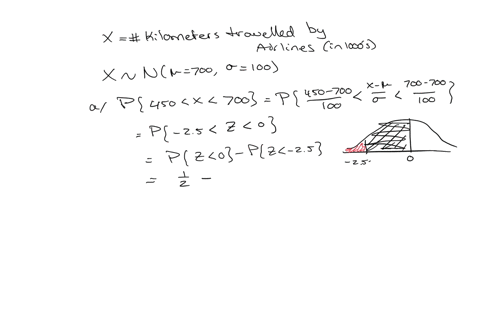 X = # Kilometers travelled by
Airlines (in 1000's)
X ~ N(μ=700, σ=100)
a/ P{450 < x < 700} = P{(450-700)/100 < (x-μ)/σ < (700-700)/100}
= P{-2.5 < Z < 0}
= P{Z<0} - P{Z<-2.5}
-2.5 0
= 1/2 -